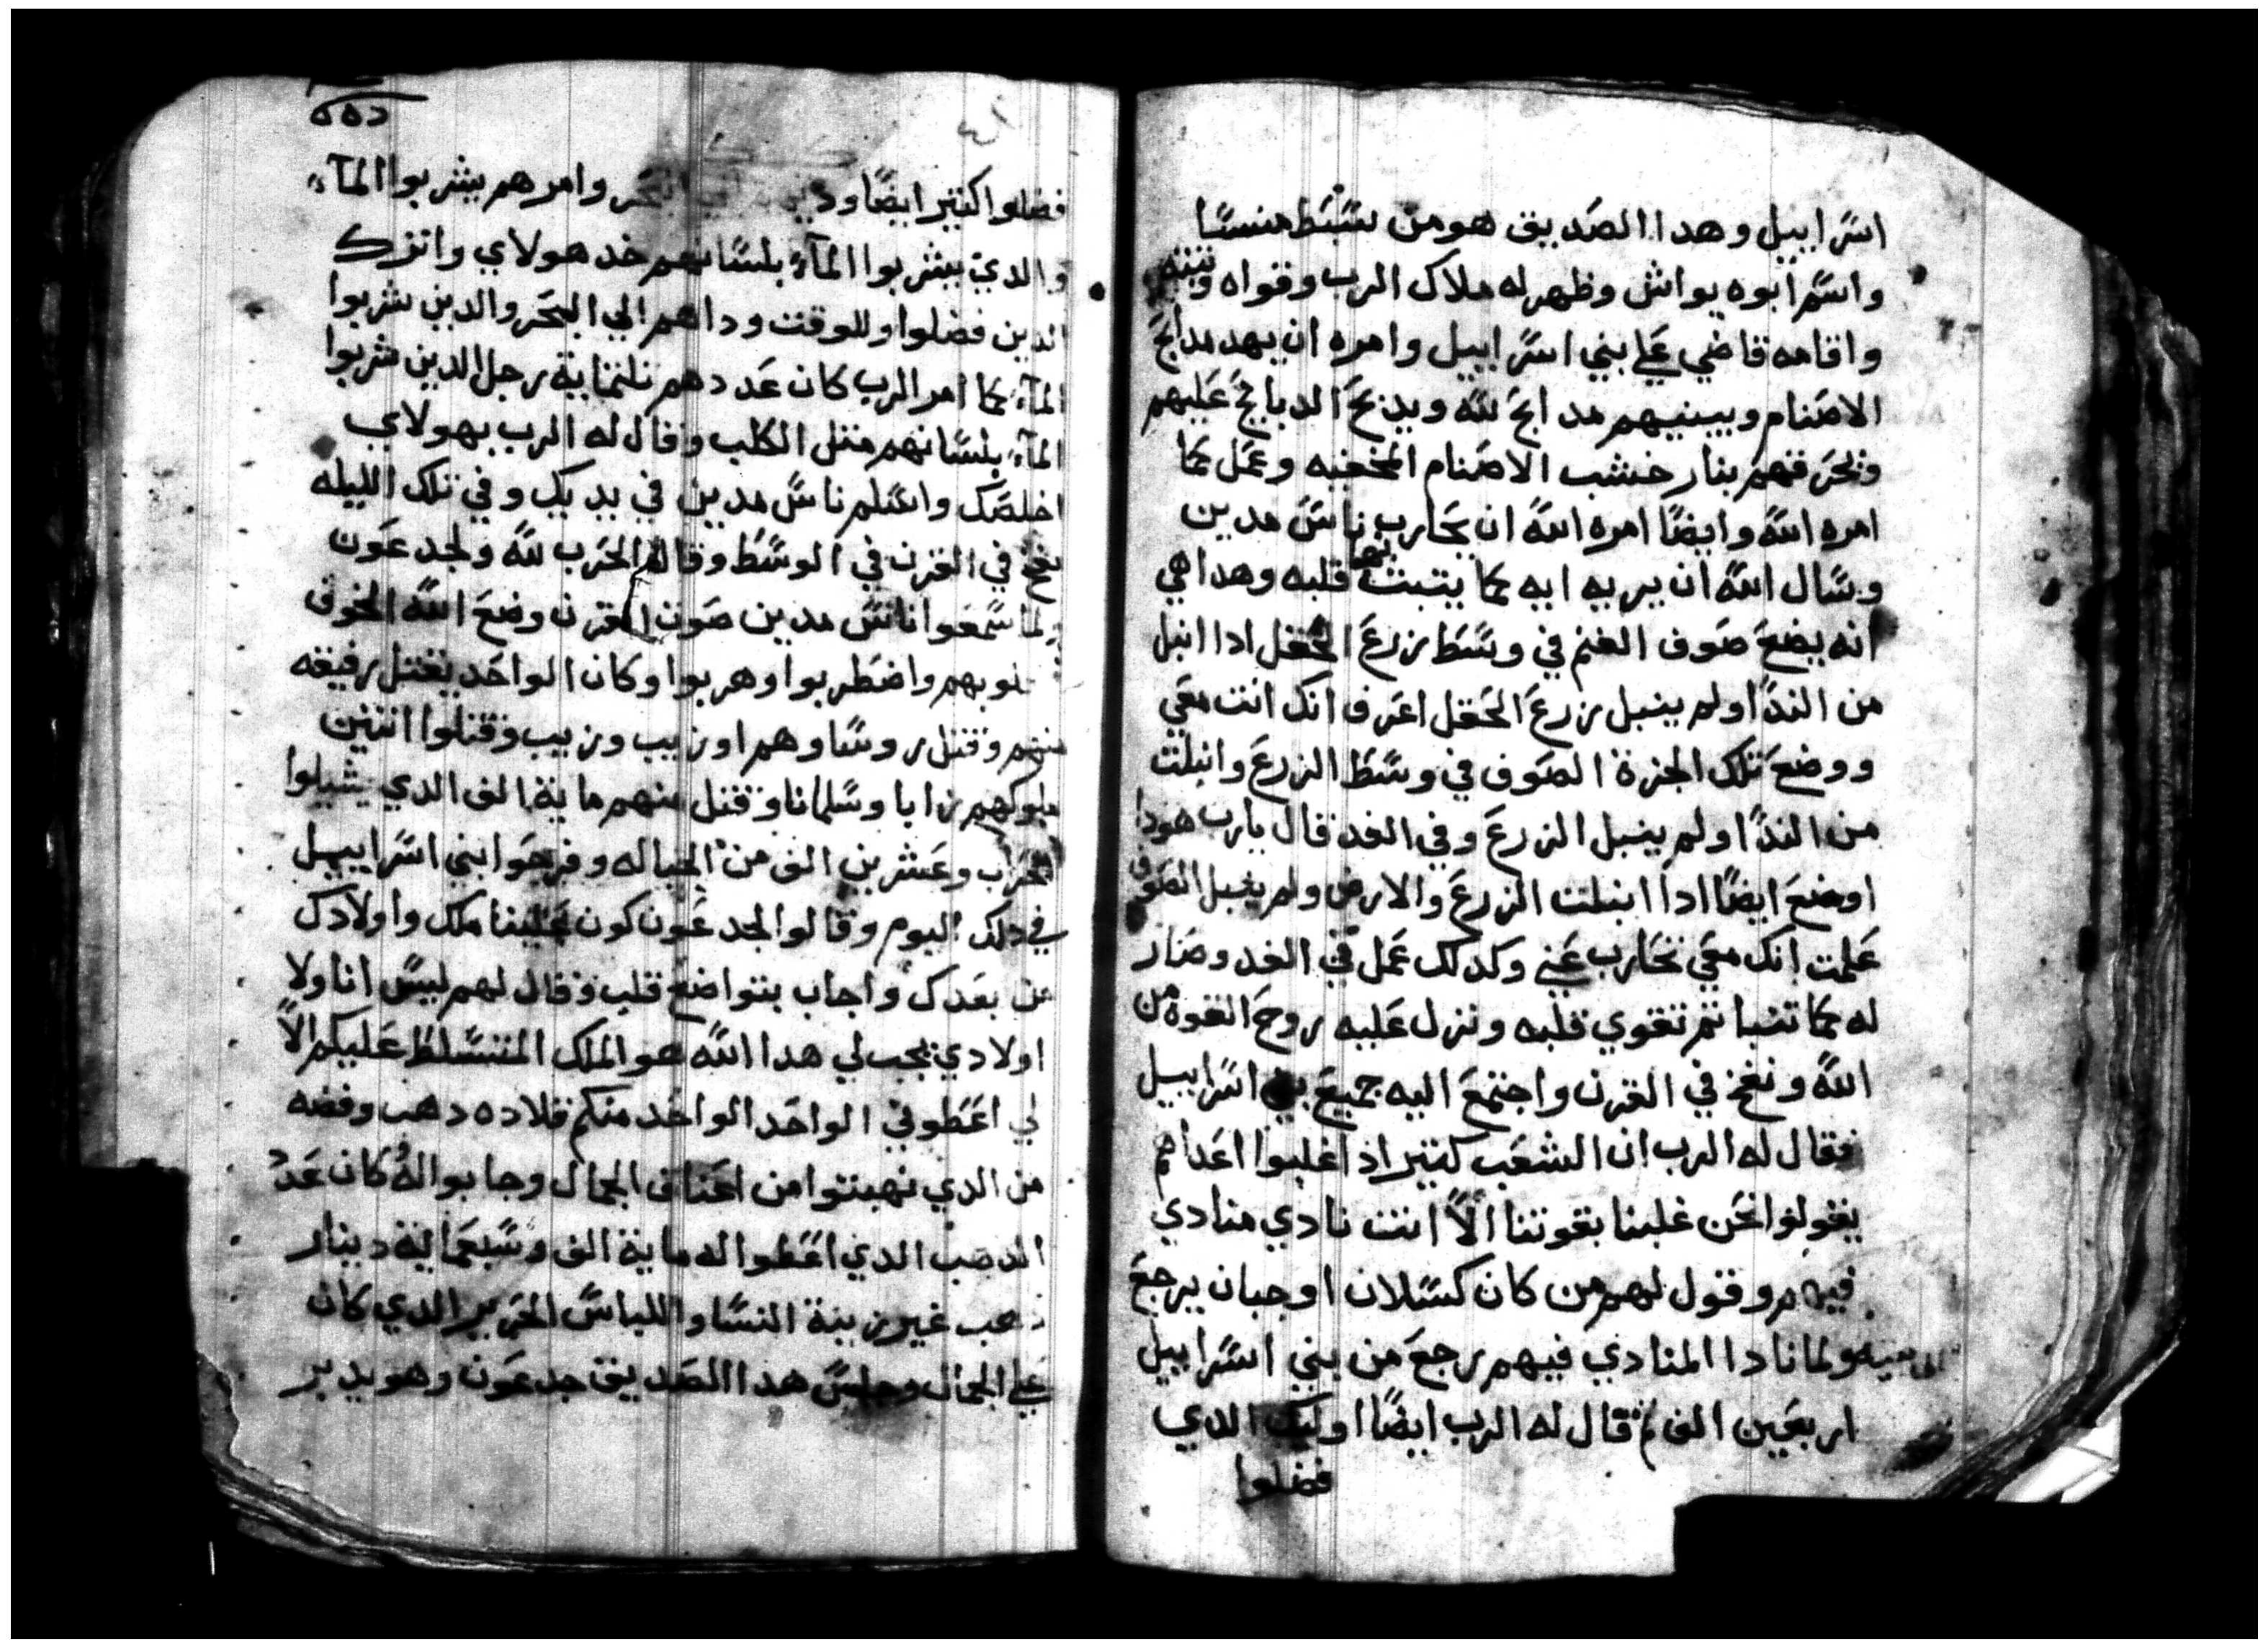 اسراييل وهدا الصديق هو من سبط منسا
واسم ابوه يواش وظهر له ملاك الرب وقواه وثبته
واقامه قاضي علي بني اسراييل وامره ان يهد مدابح
الاصنام ويبنيهم مدابح لله ويدبح الدبايح عليهم
وتحرقهم بنار خشب الاصنام المخفيه وعمل كما
امره الله وايضا امره الله ان يحارب ناس مدين
وسال الله ان يريه ايه كما يتبت بها قلبه وهدا هي
انه يضع صوف الغنم في وسط زرع الحقل ادا انبل
من الندا ولم ينبل زرع الحقل اعرف انك انت معي
ووضع تلك الجزة الصوف في وسط الزرع وانبلت
من الندا ولم ينبل الزرع وفي الغد قال يارب هودا
اوضع ايضا ادا انبلت الزرع والارض ولم ينبل الصوف
علمت انك معي تحارب عني وكدلك عمل في الغد وصار
له كما تنبا ثم تقوي قلبه ونزل عليه روح القوة من
الله ونفخ في القرن واجتمع اليه جميع بني اسراييل
فقال له الرب ان الشعب كتير ادا غلبوا اعداهم
يقولوا نحن غلبنا بقوتنا الا انت نادي منادي
فيهم وقول لهم من كان كسلان او جبان يرجع
الي بيته ولما نادا المنادي فيهم رجع من بني اسراييل
اربعين الف ثم قال له الرب ايضا اوليك الدي
فضلوا
٥٥٥
٤١
فضلوا كتير ايضا البحر وامرهم يشربوا المآء
والدي يشربوا المآء بلسانهم خد هولاي واترك
الدين فضلوا وللوقت وداهم الي البحر والدين شربوا
المآء كما امر الرب كان عددهم تلتماية رجل الدين شربوا
المآء بلسانهم متل الكلب وقال له الرب بهولاي
اخلصك واسلم ناس مدين في يديك وفي تلك الليله
نفخ في القرن في الوسط وقال الحرب لله ولجدعون
ولما سمعوا ناس مدين صوت القرن وضع الله الخوف
قلوبهم واضطربوا وهربوا وكان الواحد يقتل رفيقه
منهم وقتل روسا وهم اوريب وزيب وقتلوا اتنين
ملوكهم زابا وسلمانا وقتل منهم ماية الف الدي يشيلوا
الحراب وعشرين الف من الخياله وفرحوا بني اسراييل
في دلك اليوم وقالوا لجدعون كون علينا ملك واولادك
من بعدك واجاب بتواضع قلب وقال لهم ليس انا ولا
اولادي يجب لي هدا الله هو الملك المتسلط عليكم الا
لي اعطوني الواحد الواحد منكم قلاده دهب وفضه
من الدي نهبتوا من اعناق الجمال وجابوا له كان عدد
الدهب الدي اعطوا له ماية الف وسبعماية دينار
دهب غير زينة النسا واللباس الحرير الدي كان
علي الجمال وجلس هدا الصديق جدعون وهو يدبر